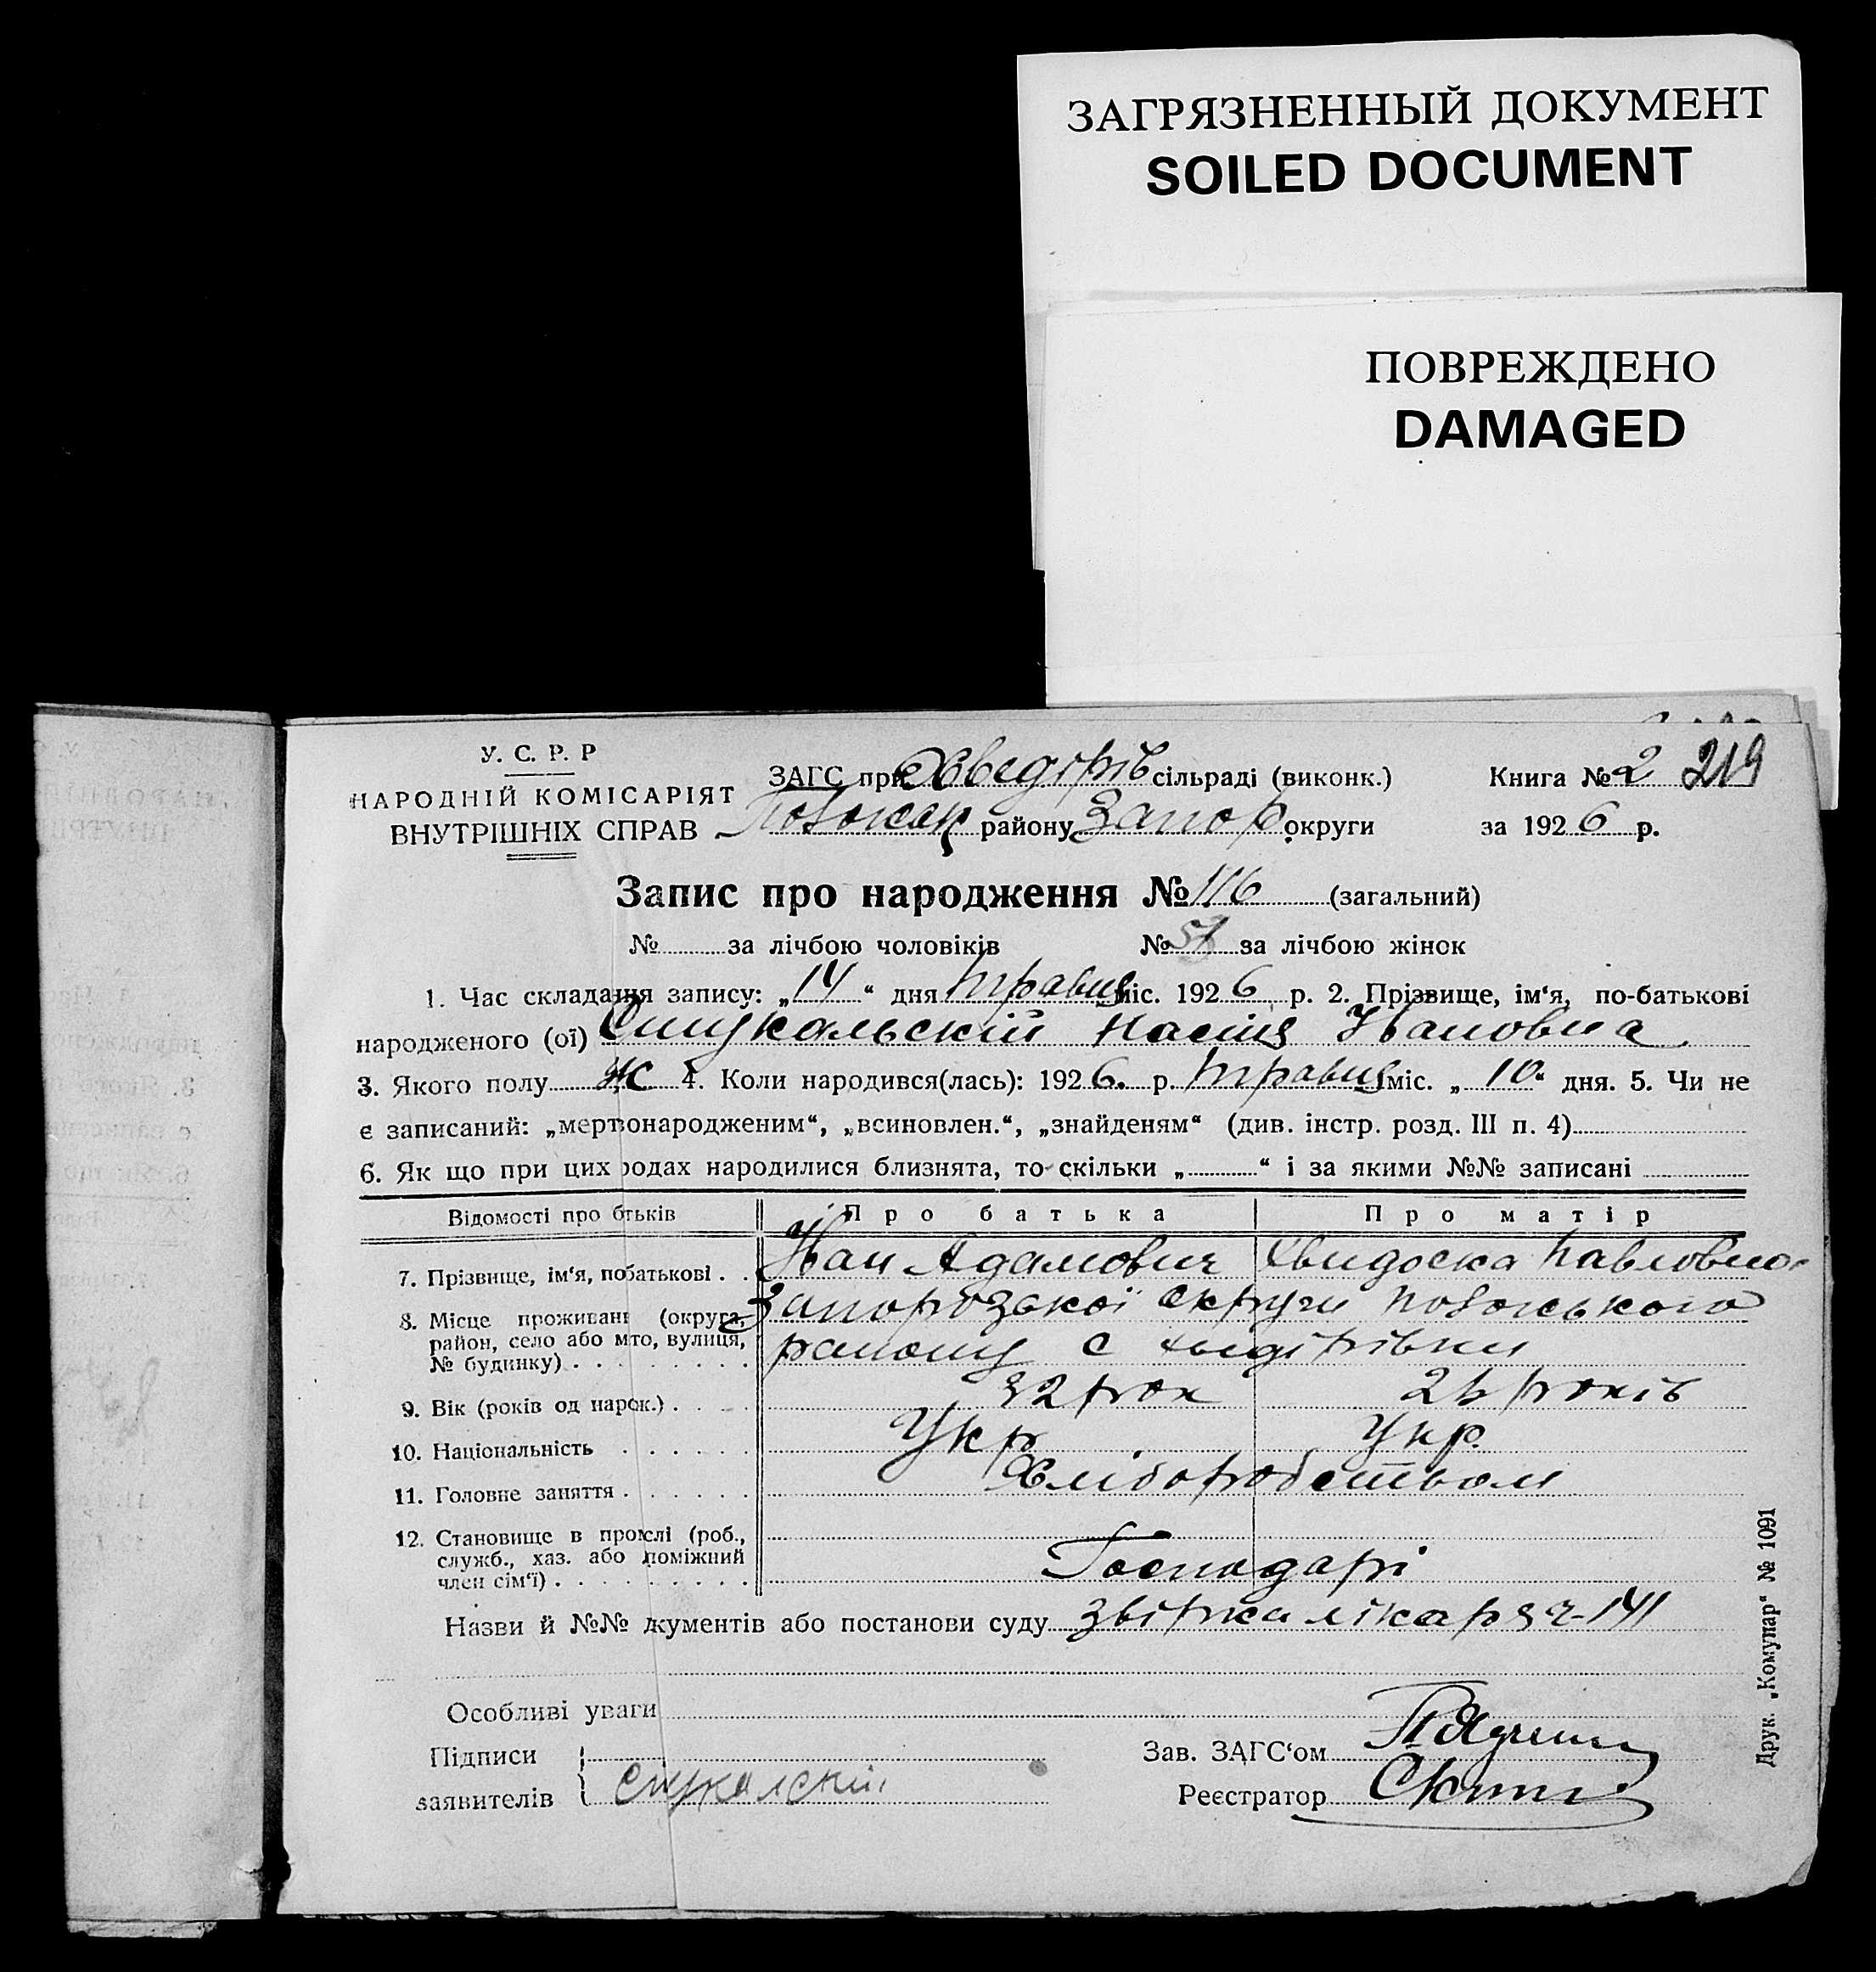 ЗАГРЯЗНЕННЫЙ ДОКУМЕНТ
SOILED DOCUMENT
ПОВРЕЖДЕНО
DAMAGED
У. С. Р. Р
НАРОДНІЙ КОМІСАРІЯТ
ВНУТРІШНІХ СПРАВ
ЗАГС при Хведорів сільраді (виконк.) Книга № 2 219
району Запор округи за 1926 р.
Запис про народження № 116 (загальний)
№ за лічбою чоловіків № за лічбою жінок
1. Час складання запису: „14“ дня травня міс. 1926 р. 2. Прізвище, ім‘я, по-батькові
народженого (ої) Стукальскій Настя Ивановна
3. Якого полу Ж 4. Коли народився(лась): 1926. р. травня міс. „10“ дня. 5. Чи не
є записаний: „мертвонародженим“, „всиновлен.“, „знайденям“ (див. інстр. розд. III п. 4)
6. Як що при цих родах народилися близнята, то скільки „ “ і за якими №№ записані
Відомості про бтьків Про батька Про матір
7. Прізвище, ім‘я, побатькові Иван Адамович Павловна
8. Місце проживанн (округа, Запорізької округи
район, село або мто, вулиця, району с
№ будинку)
9. Вік (років од нарож.) 32 рок років
10. Національність Укр Укр.
11. Головне заняття Хліборобством
12. Становище в промслі (роб.,
служб., хаз. або поміжний
член сім‘ї) Господарі
Назви й №№ документів або постанови суду лікаря ч-141
Особливі уваги
Підписи
заявителів Стукалскій
Зав. ЗАГС‘ом
Реєстратор
Друк. „Комунар“ № 1091